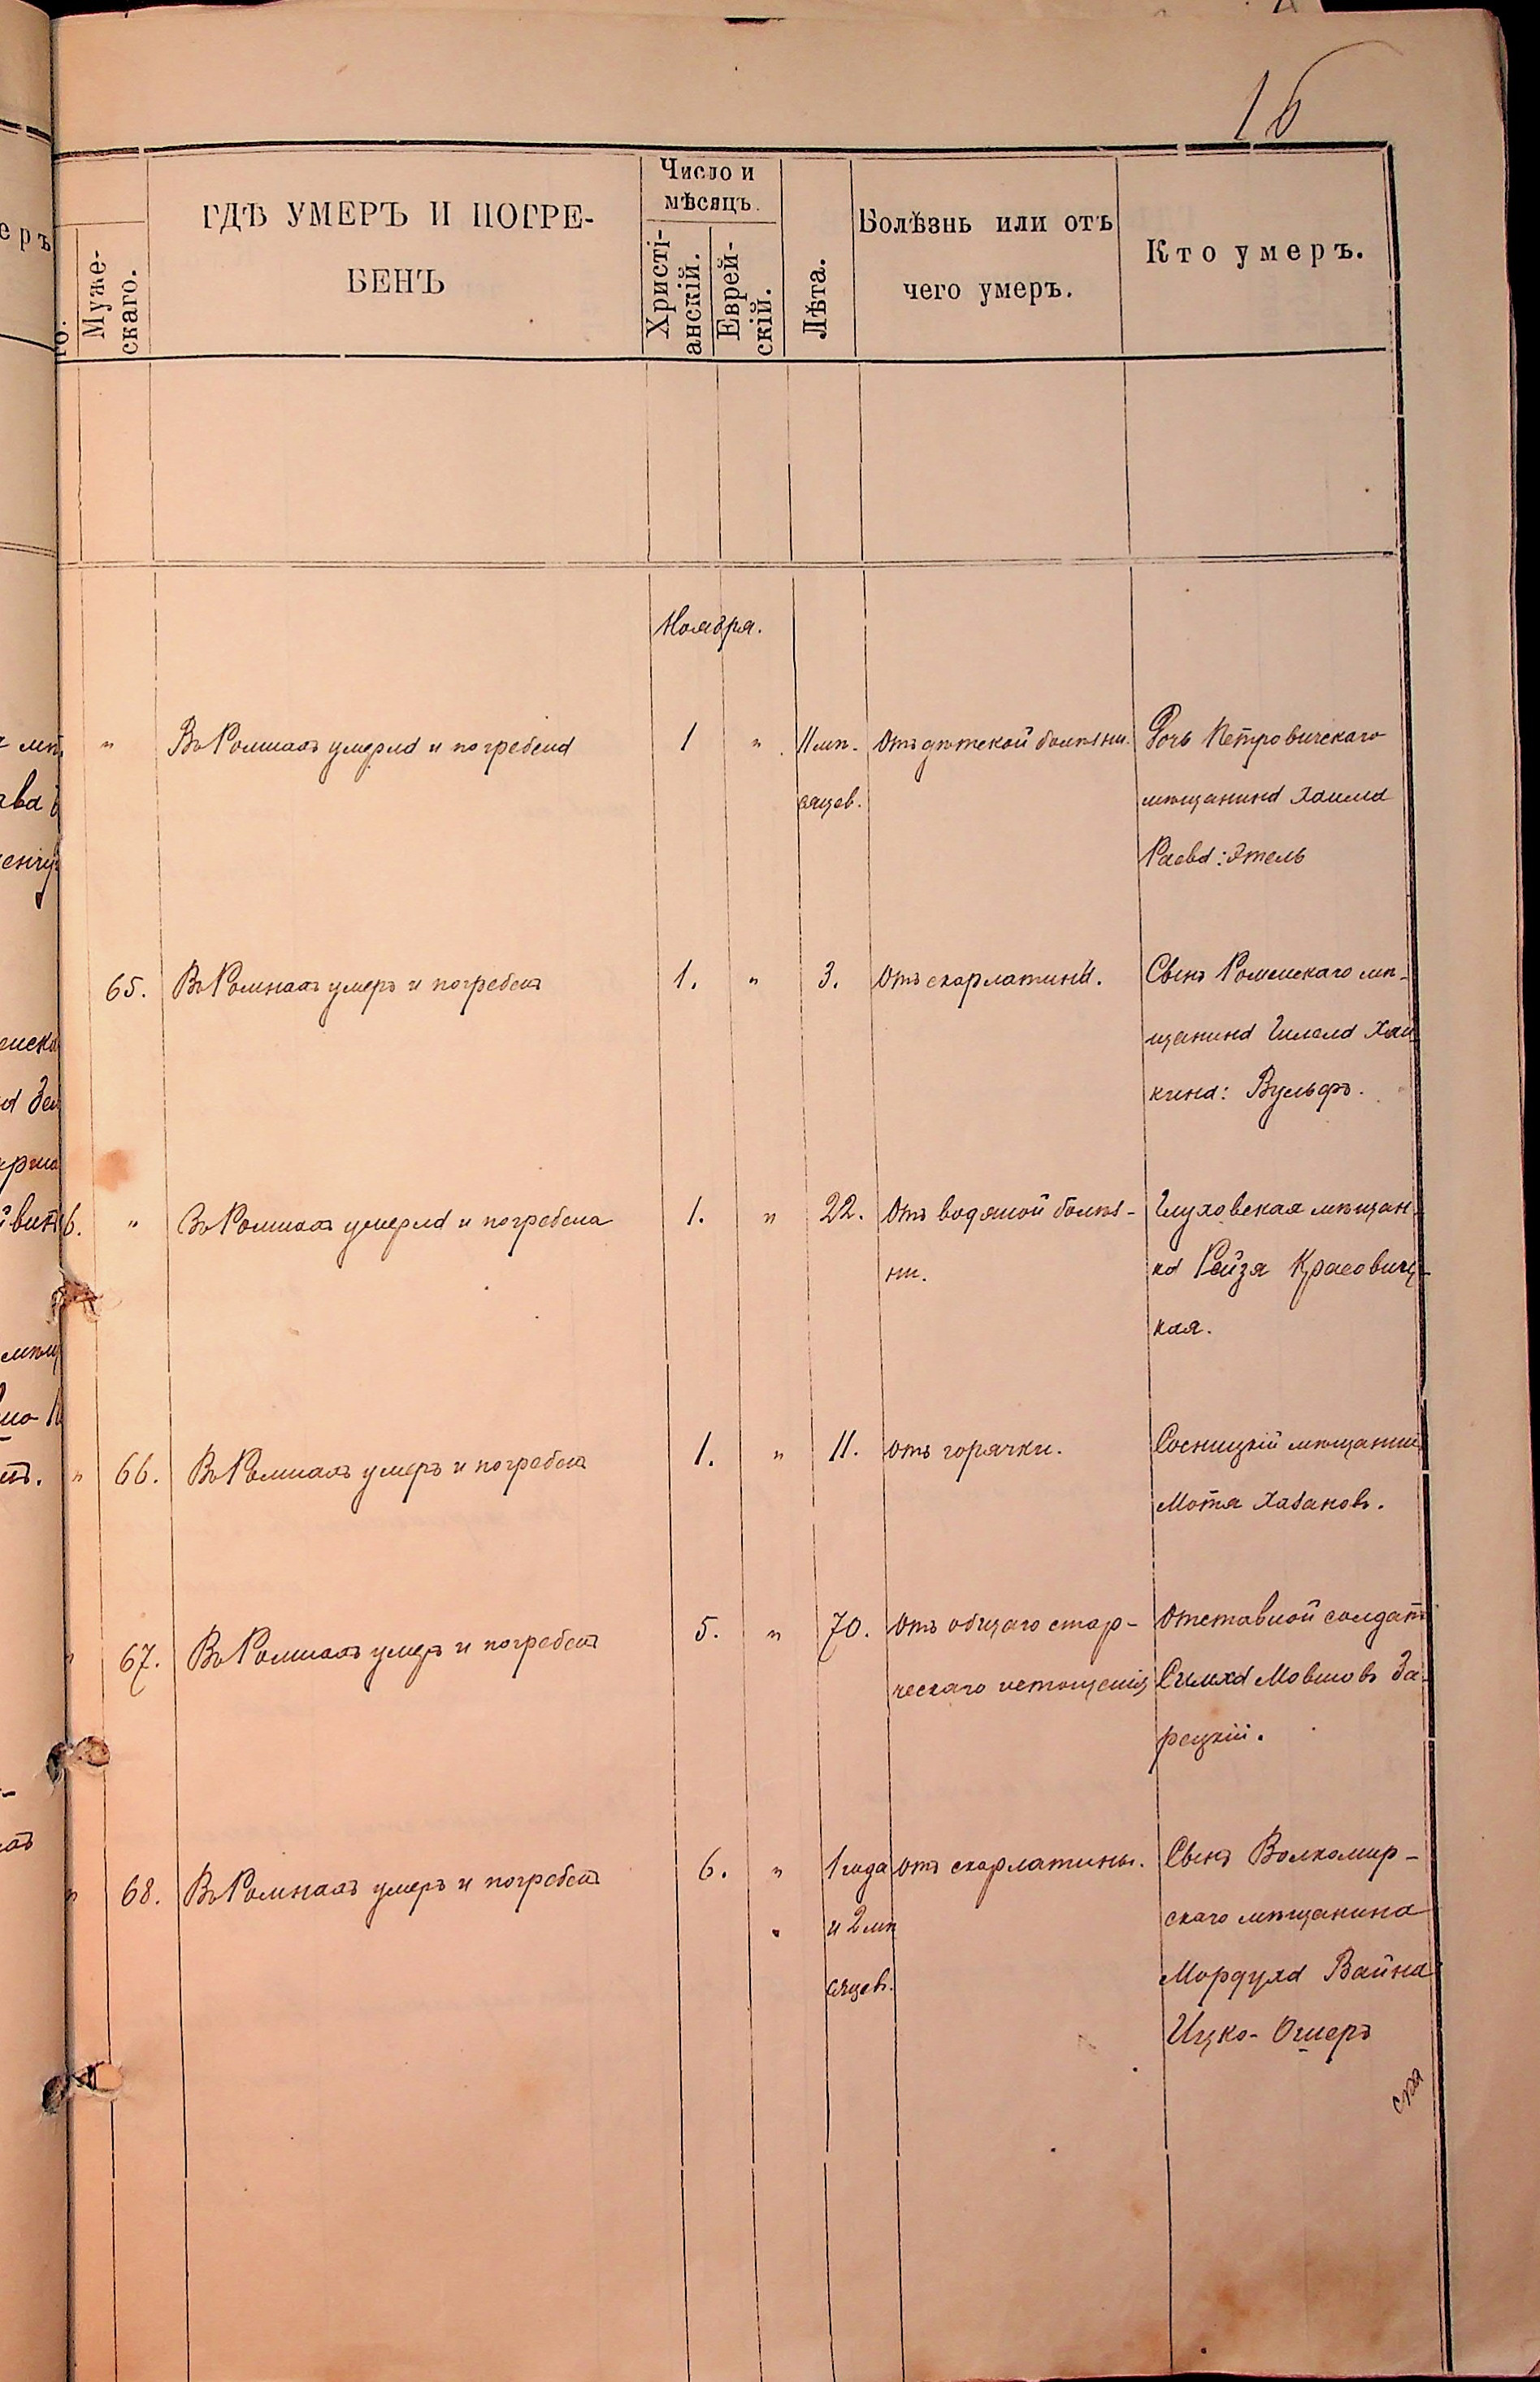 16
Число и
мѣсяцъ.
ГДѢ УМЕРЪ И ПОГРЕ-
БЕНЪ
Муже-
скаго.
Христі-
анскій.
Еврей-
скій.
Лѣта.
Болѣзнь или отъ
чего умеръ.
Кто умеръ.
Ноября.
" Въ Ромнахъ умерла и погребена 1 " 11 мѣ- Отъ дѣтской болѣзни. Дочь Петровичскаго
сяцев. мѣщанина Хаима
Раева: Этель
65. Въ Ромнахъ умеръ и погребенъ 1. " 3. Отъ скарлатины. Сынъ Роменскаго мѣ-
щанина Гилела Хай
кина: Вульфъ.
" Въ Ромнахъ умерла и погребена 1. " 22. Отъ водяной болѣз- Глуховская мѣщан
ни. ка Рейзя Красовиц-
кая.
" 66. Въ Ромнахъ умеръ и погребенъ 1. " 11. отъ горячки. Сосницкій мѣщанин
Мотя Хабановъ.
" 67. Въ Ромнахъ умеръ и погребенъ 5. " 70. отъ общаго стар- Отставной солдатъ
ческаго истощенія Симха Мовшовъ За-
рецкій.
" 68. Въ Ромнахъ умеръ и погребенъ 6. " 1 года отъ скарлатины. Сынъ Волкомир-
и 2 мѣ скаго мѣщанина
сяцев. Мордуха Вайна
Ицко-Ошеръ